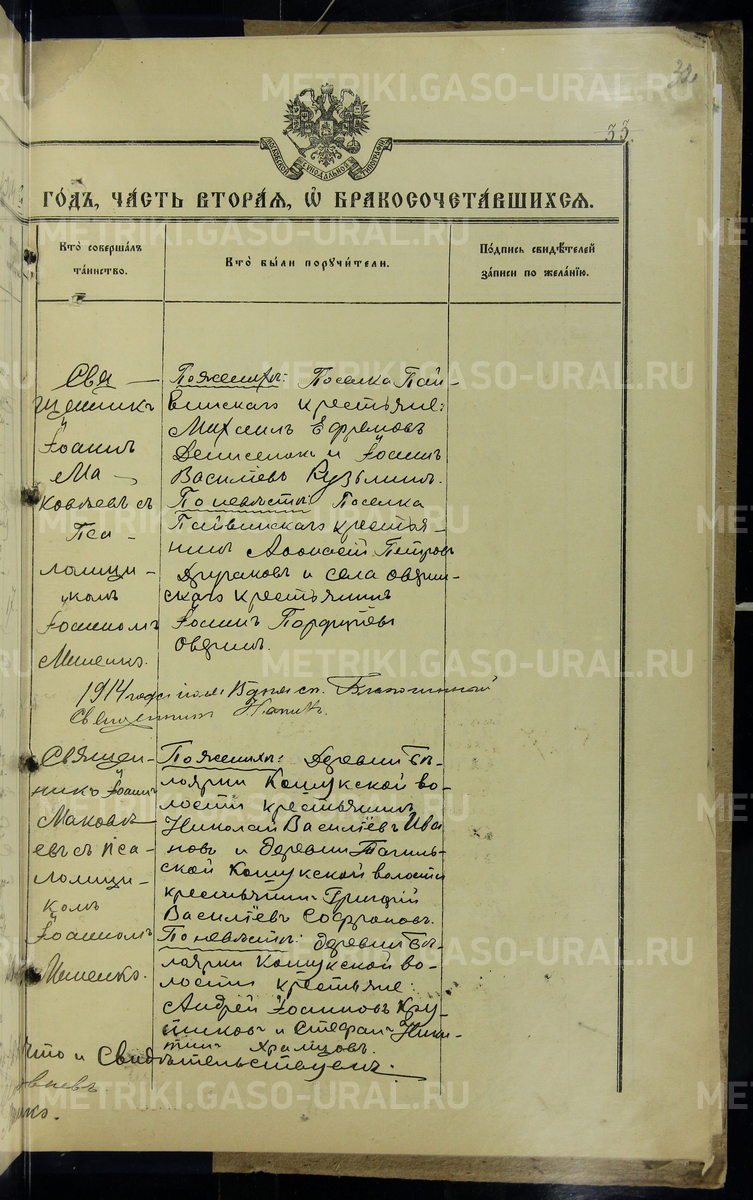 32
33.
МОСКОВСКОЙ СѴНОДАЛЬНОЙ ТИПОГРАФІИ
ГОДЪ, ЧАСТЬ ВТОРАЯ, Ѿ БРАКОСОЧЕТАВШИХСЯ.
Кто совершалъ таинство.
Кто были поручители.
Подпись свидѣтелей записи по желанію.
Свя-
щенникъ
Іоаннъ
Ма-
ковѣевъ съ
Пса-
ломщи-
комъ
Іоанномъ
Мишенко.
По женихѣ: Поселка Пай-
винскаго крестьяне:
Михаилъ Ефремовъ
Денисенко и Іоаннъ
Василіевъ Кузьминъ.
По невѣстѣ: Поселка
Пайвинскаго крестья-
нинъ Аѳонасій Петровъ
и села Овдин-
скаго крестьянинъ
Іоаннъ Порфиріевъ
Овдинъ.
1914 года Благочинный
Священникъ
Священ-
никъ Іоаннъ
Маковѣ-
евъ съ пса-
ломщи-
комъ
Іоанномъ
Мишенко.
По женихѣ: Деревни Бо-
лярки Кошукской во-
лости крестьянинъ
Николай Василіевъ Ива-
новъ и деревни Тагиль-
ской Кошукской волости
крестьянинъ Григорій
Василіевъ Софроновъ.
По невѣстѣ: деревни Бо-
лярки Кошукской во-
лости крестьяне:
Андрей Іоанновъ Кру-
тиковъ и Стефанъ Ники-
тинъ Храмцовъ.
что и Свидѣтельствуемъ:
METRIKI.GASO-URAL.RU